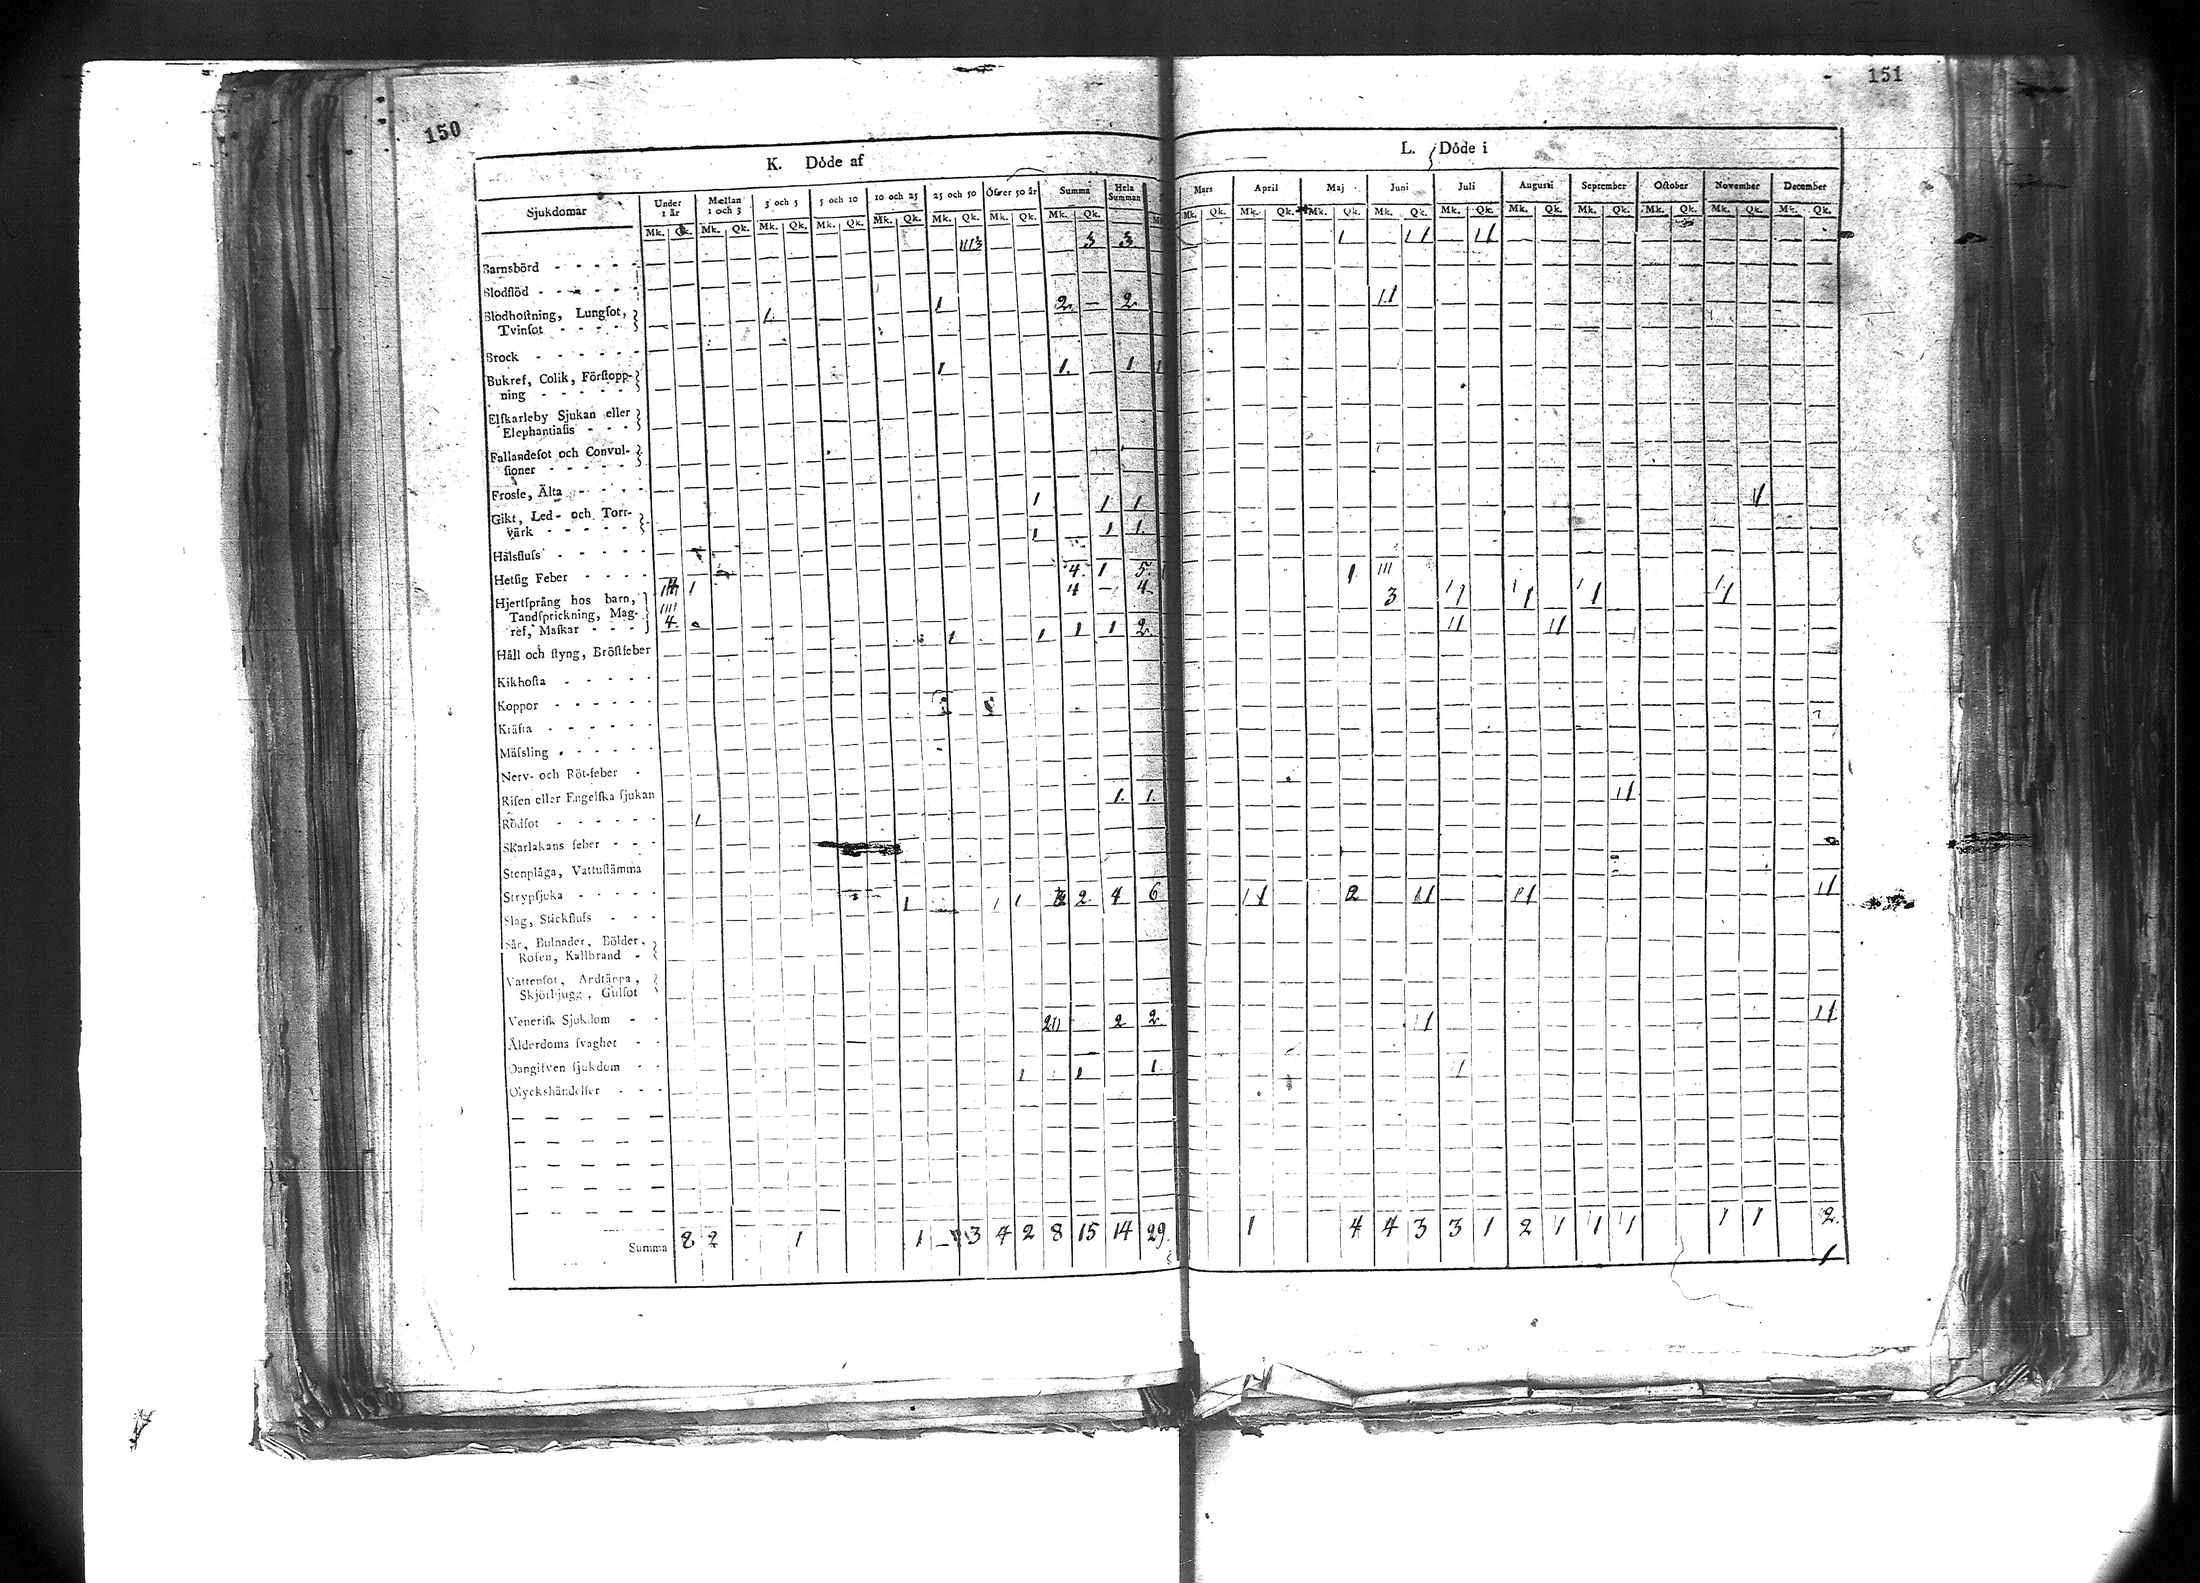 150
151
K. Döde af
L. Döde i
Sjukdomar
Under 1 år
Mællan 1 och 3
3 och 5
5 och 10
10 och 25
25 och 50
Öfver 50 år
Summa
Hela Summan
Mars
April
Maj
Juni
Juli
Augusti
September
October
November
December
Mk. Qk. Mk. Qk. Mk. Qk. Mk. Qk. Mk. Qk. Mk. Qk. Mk. Qk. Mk. Qk.
Mk. Qk. Mk. Qk. Mk. Qk. Mk. Qk. Mk. Qk. Mk. Qk. Mk. Qk. Mk. Qk. Mk. Qk. Mk. Qk.
3 3
Barnsbörd
Blodflöd
1 2 2
Blodhostning, Lungsot,
Tvinsot
1
Brock
1 1 1
Bukref, Colik, Förstopp-
ning
Elskarleby Sjukan eller
Elephantiasis
Fallandesot och Convul-
sioner
Frosse, Älta
1 1 1
Gikt, Led- och Torr-
värk
1 1 1
Halsfluss
Hetsig Feber
4 1 5
Hjertsprång hos barn,
Tandsprickning, Mag-
ref, Maskar
4 4 4
Håll och styng, Bröstfeber
1 1 1 1 2
Kikhosta
Koppor
Kräfta
Mässling
Nerv- och Röt-feber
Risen eller Engelska sjukan
1 1
Rödsot
1
Skarlakans feber
Stenplåga, Vattustämma
Strypsjuka
1 1 1 2 4 6
Slag, Stickfluss
Sår, Bulnader, Bölder,
Rosen, Kallbrand
Vattensot, Ardtäppa,
Skjörbjugg, Gulsot
Venerisk Sjukdom
2 2 2
Ålderdoms svaghet
Oangifven sjukdom
1 1 1
Olyckshändelser
Summa 8 2 1 1 3 4 2 8 15 14 29
1 4 4 3 3 1 2 1 1 1 1 1 2
1